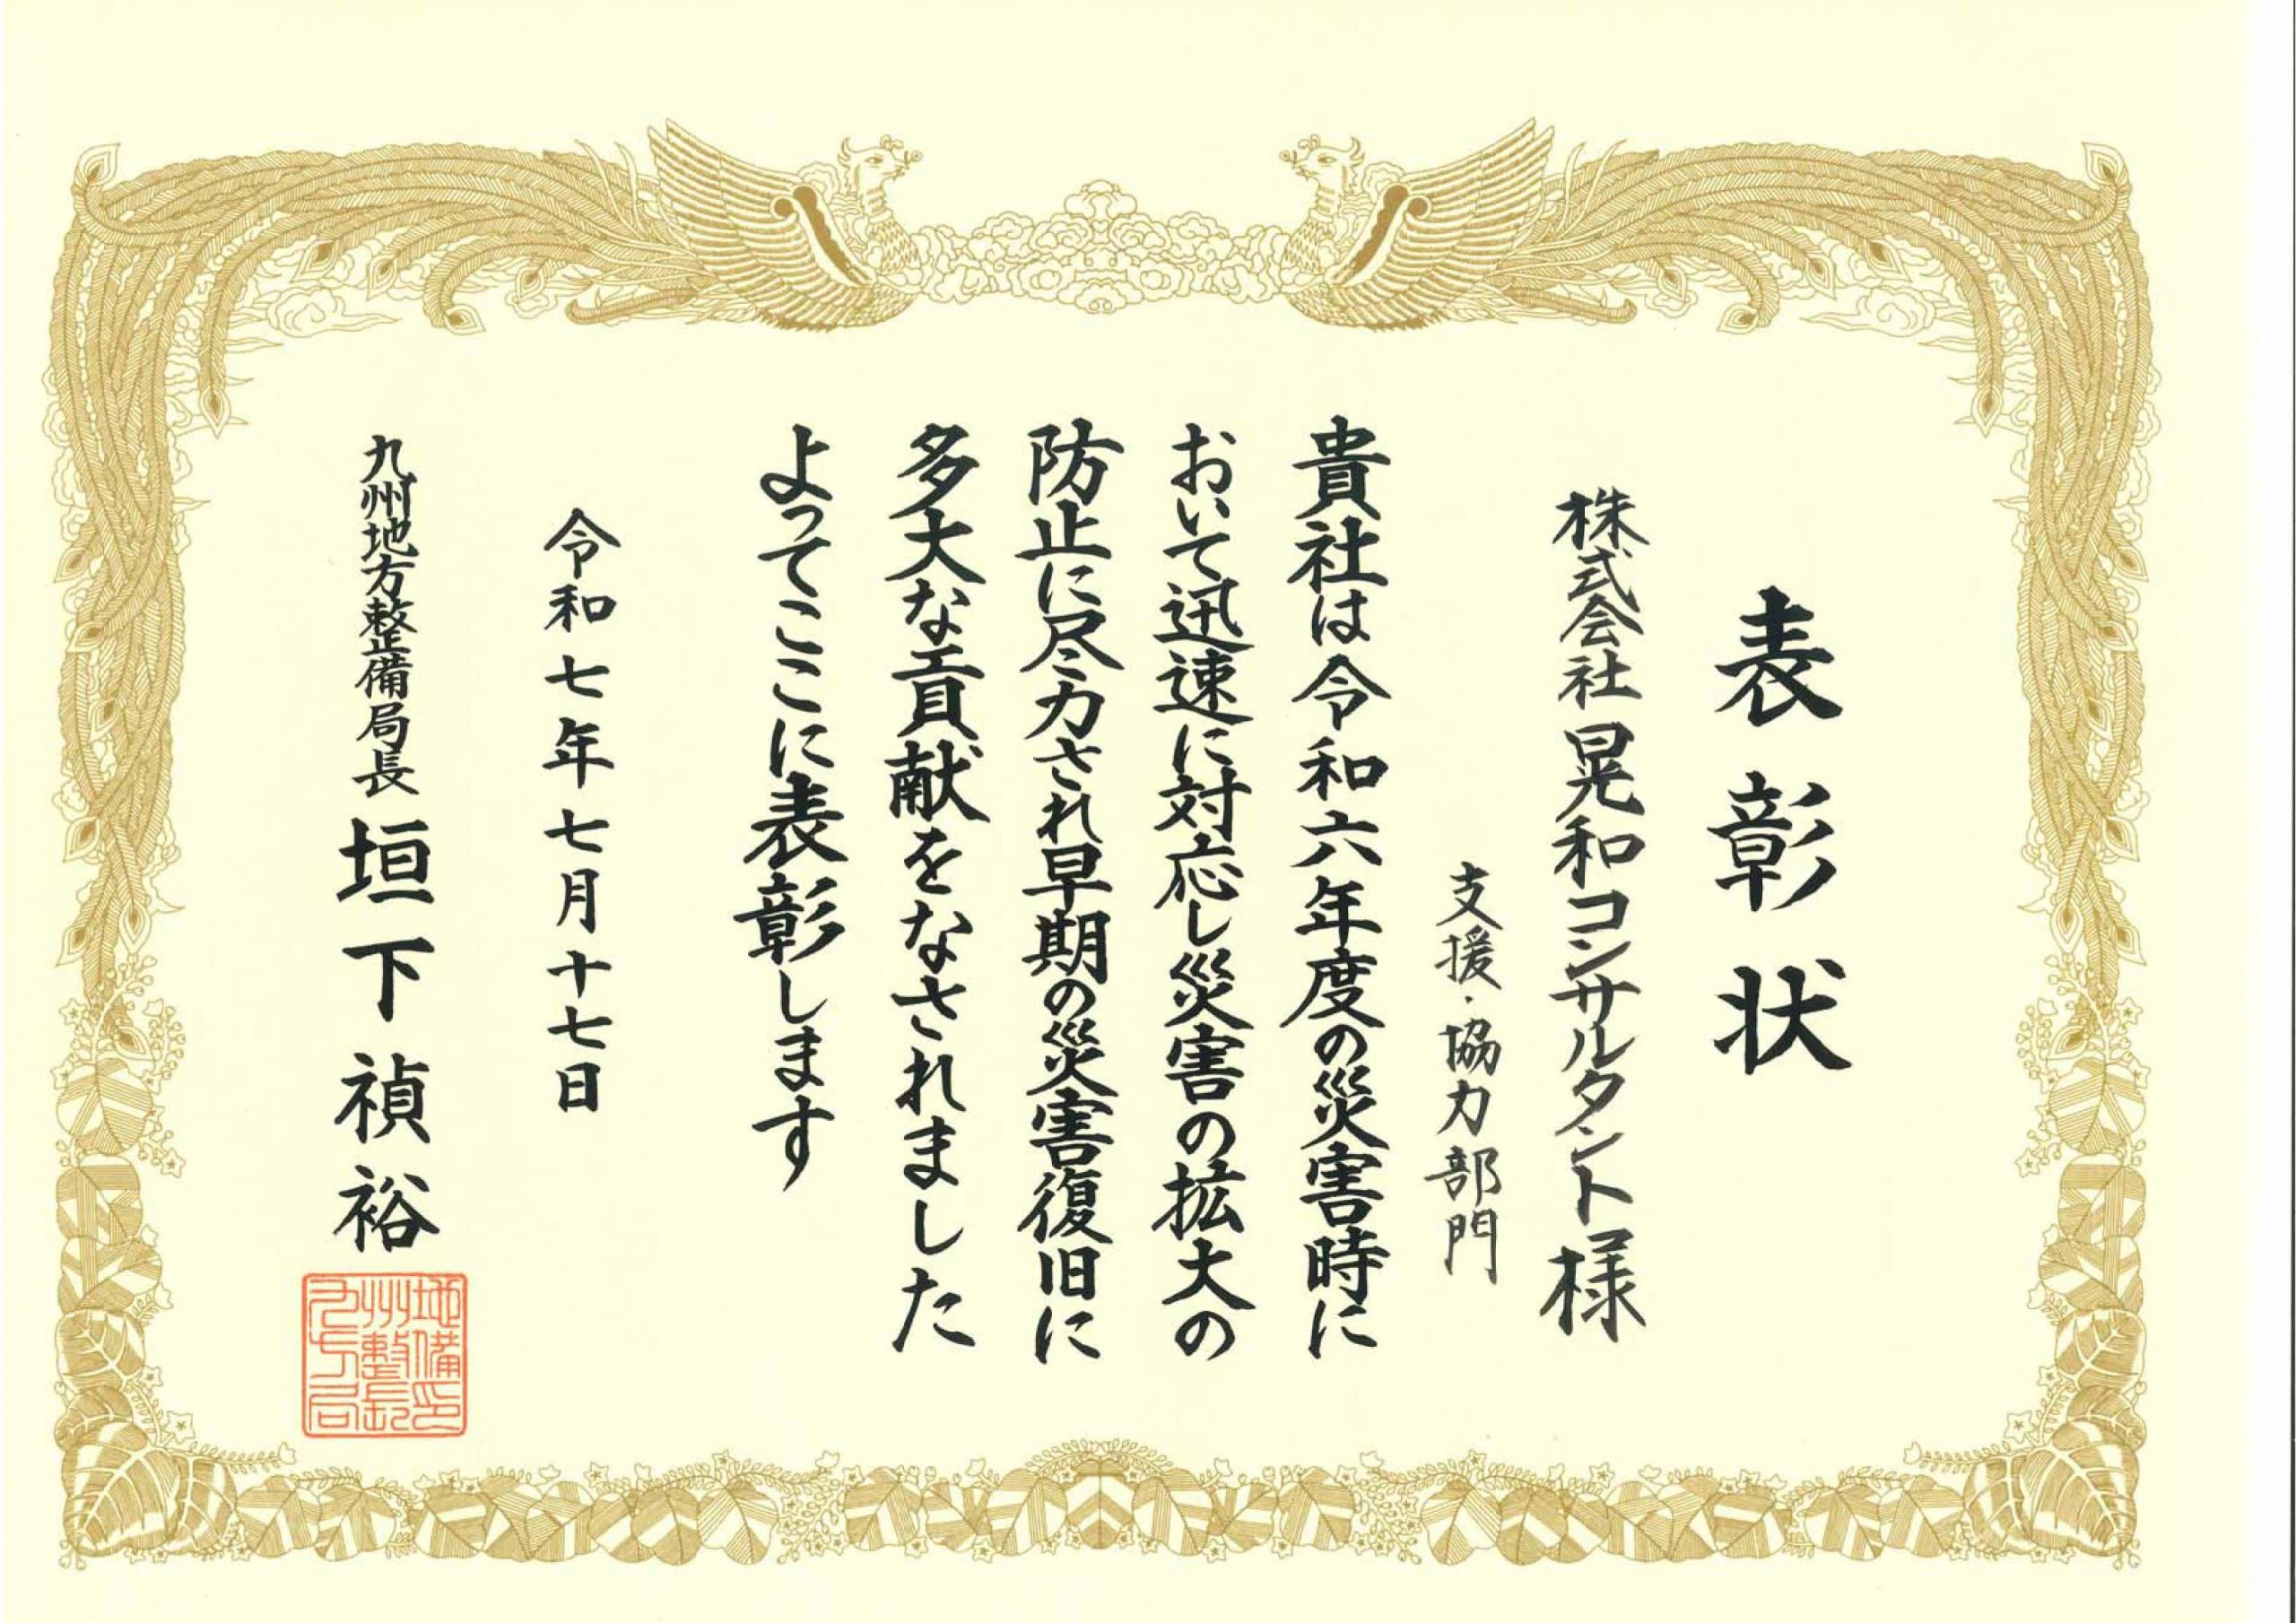 表彰状
株式会社晃和コンサルタント様
支援・協力部門
貴社は令和六年度の災害時に
おいて迅速に対応し災害の拡大の
防止に尽力され早期の災害復旧に
多大な貢献をなされました
よってここに表彰します
令和七年七月十七日
九州地方整備局長 垣下禎裕